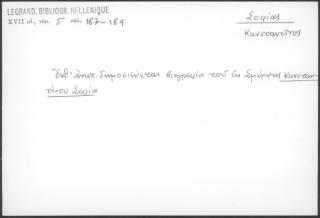 LEGRAND, BIBLIOGR. HELLENIQUE
XVII αἰ., τόμ. 5 σελ. 187-189
Σοφίας
Κωνσταντῖνος
Ἔνθ' ἀνωτ. δημοσιεύεται βιογραφία τοῦ ἐκ Σμύρνης Κωνσταν
τίνου Σοφία